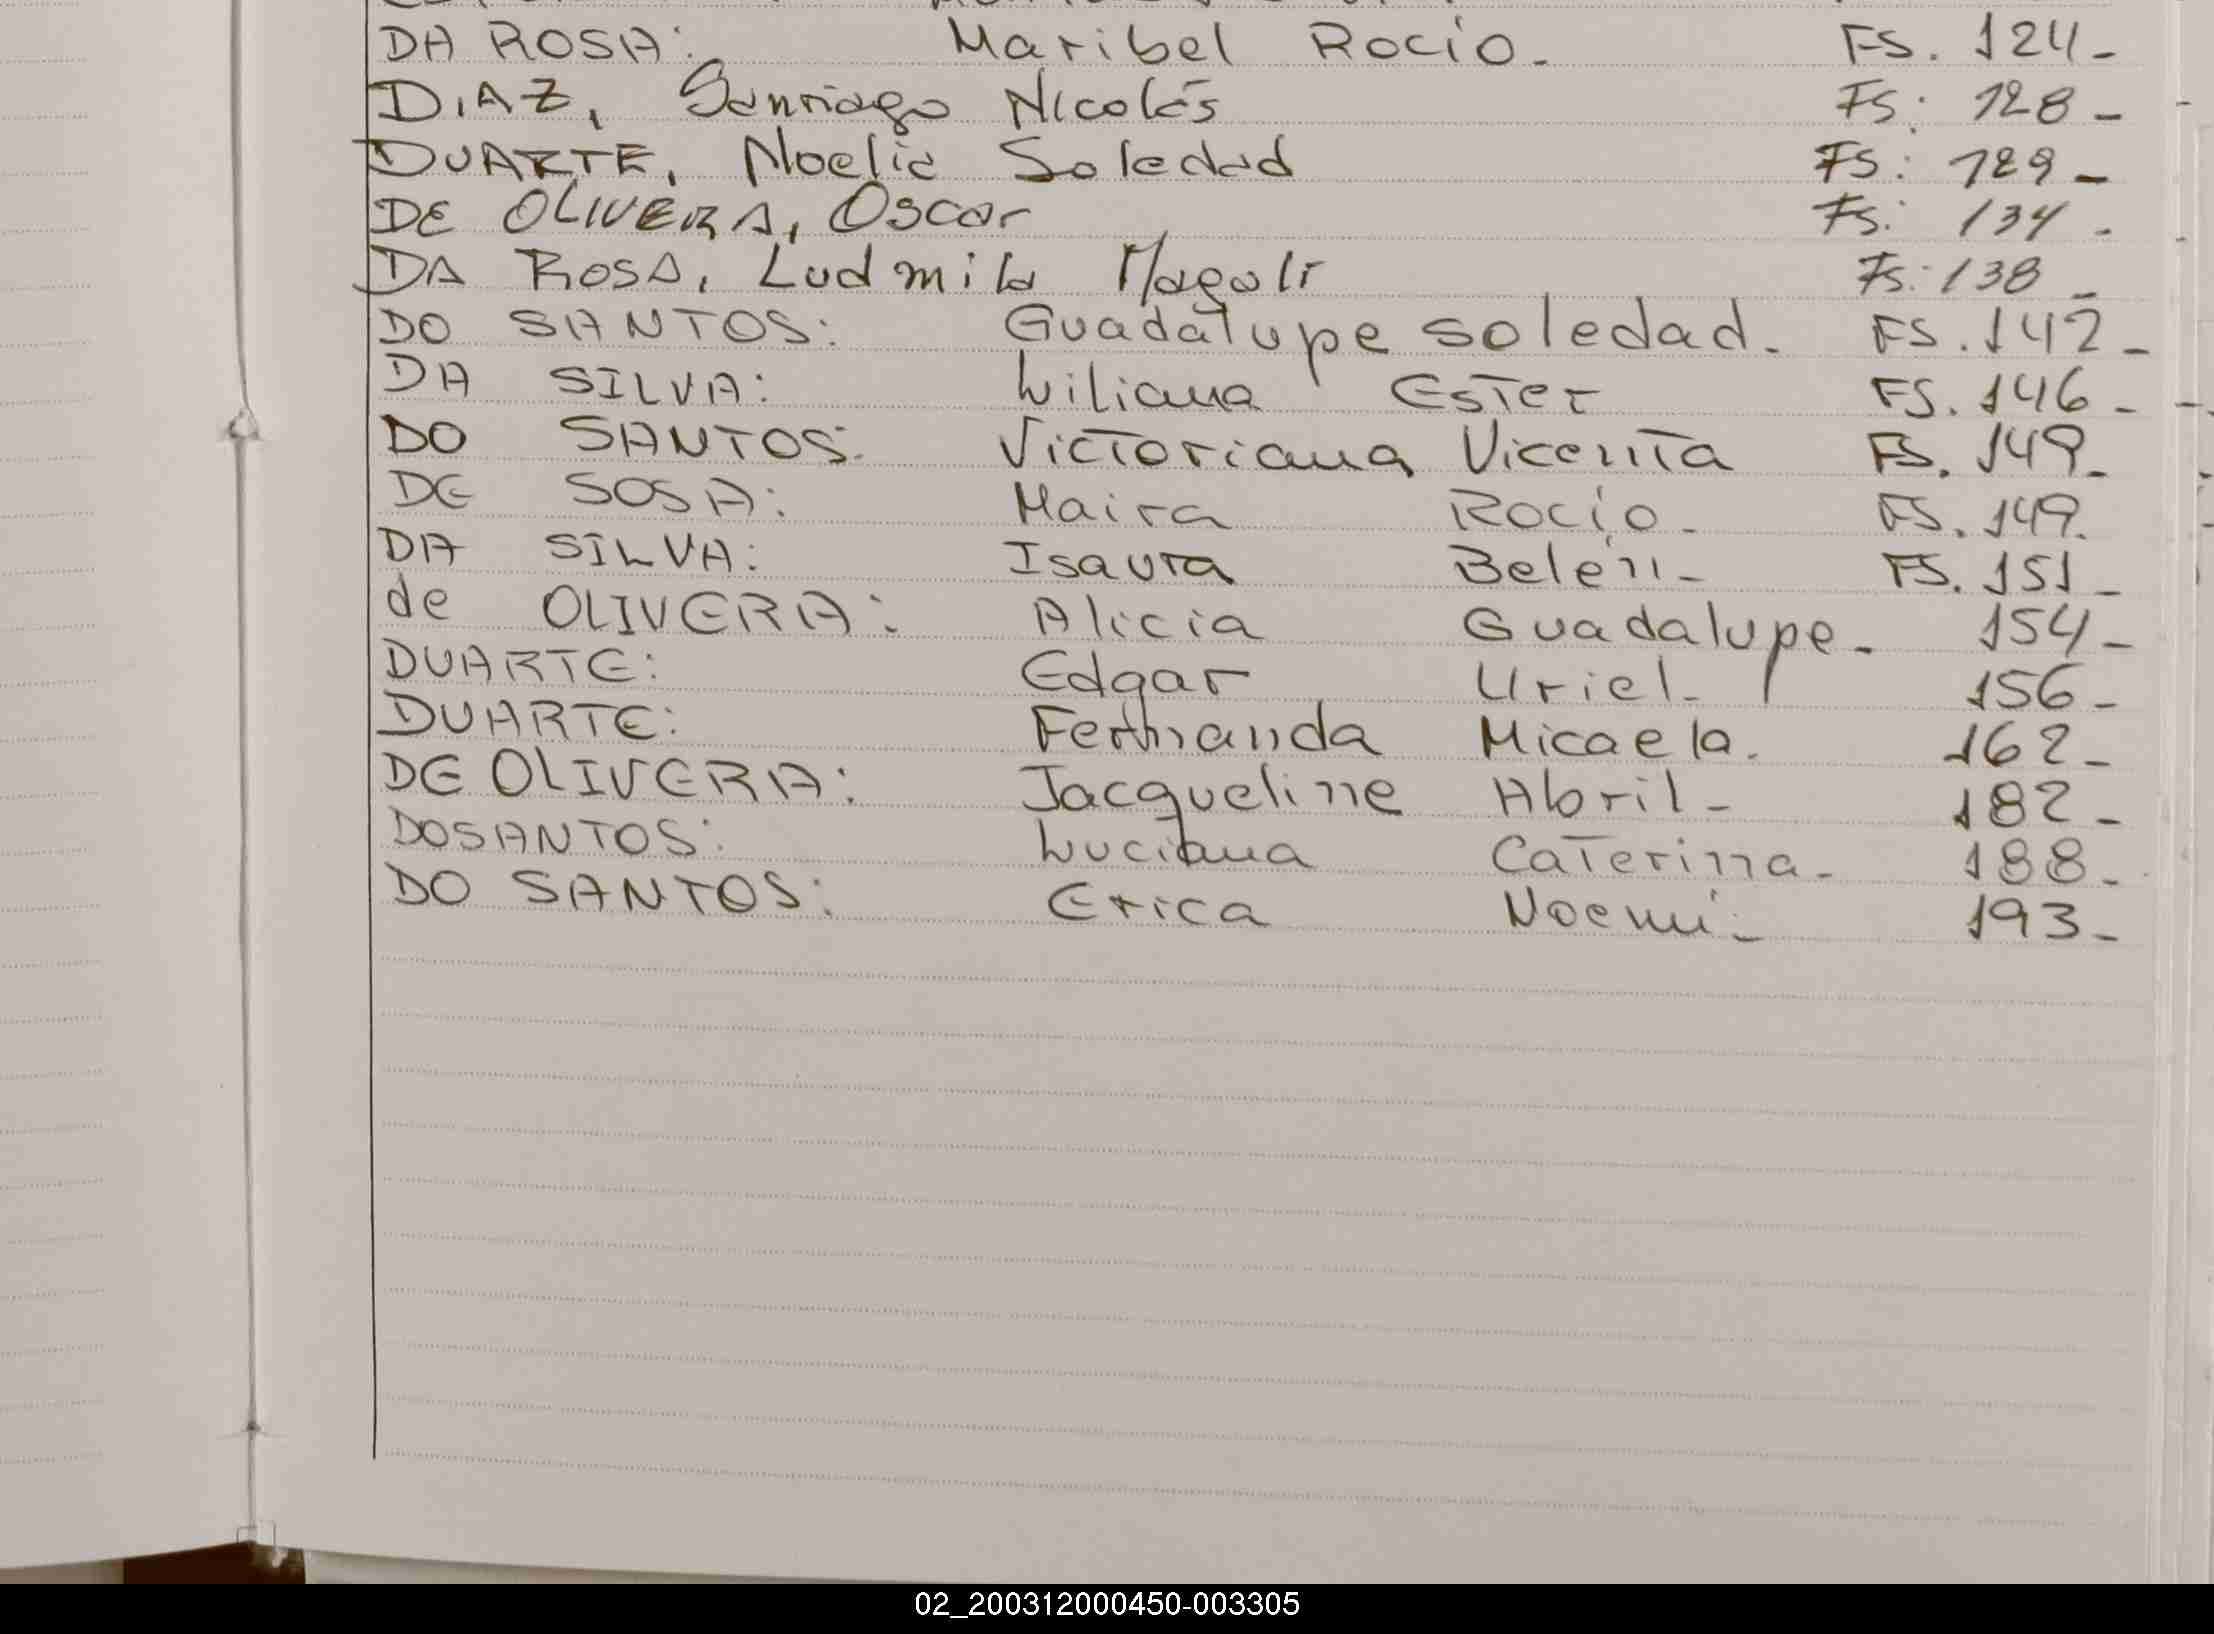 DA ROSA: Maribel Rocío. FS. 124-
DIAZ, Santiago Nicolás FS: 128-
DUARTE, Noelia Soledad FS: 129-
DE OLIVERA, Oscar Fs: 134.
DA ROSA, Ludmila Magali Fs: 138-
DO SANTOS: Guadalupe Soledad. FS. 142-
DA SILVA: Liliana Ester FS. 146-
DO SANTOS: Victoriana Vicenta FS. 149-
DE SOSA: Maira Rocío- FS. 149.
DA SILVA: Isaura Belén- FS. 151-
de OLIVERA: Alicia Guadalupe- 154-
DUARTE: Edgar Uriel- 156-
DUARTE: Fernanda Micaela. 162-
DE OLIVERA: Jacqueline Abril- 182-
DOSANTOS: Luciana Caterina- 188-
DO SANTOS: Erica Noemí- 193-
02_200312000450-003305